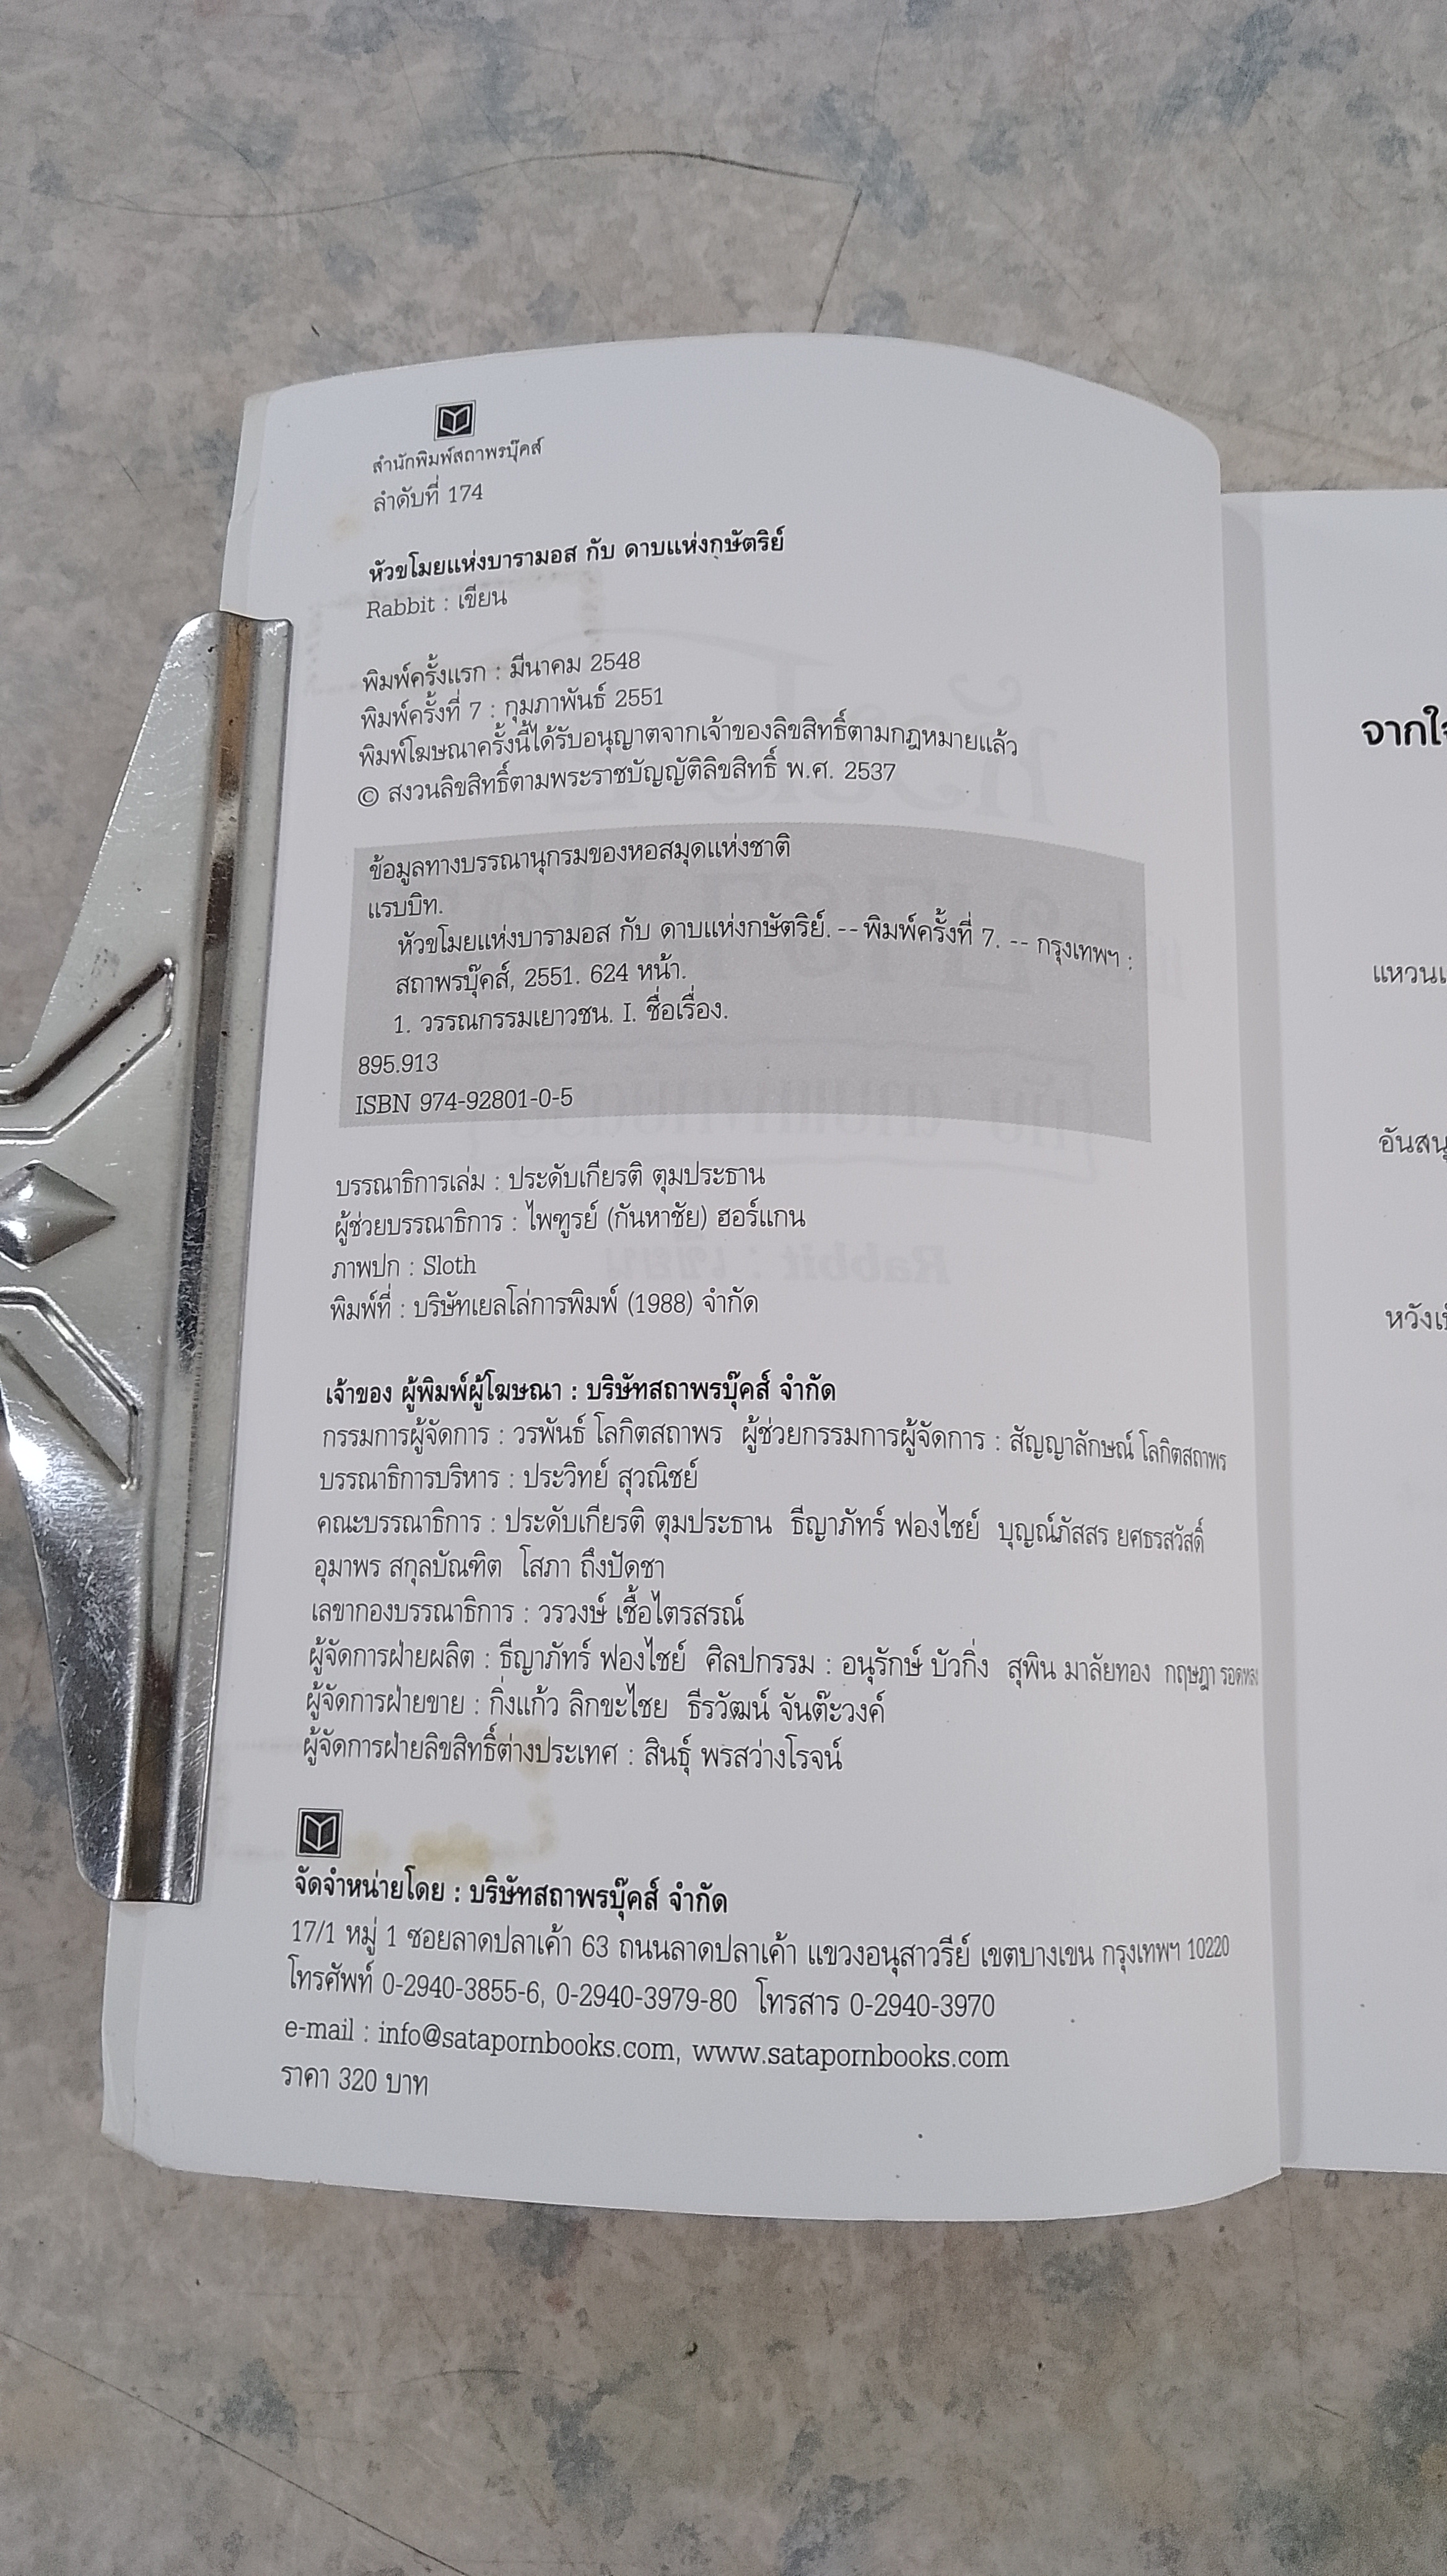 สำนักพิมพ์สถาพรบุ๊คส์
ลำดับที่ 174
หัวขโมยแห่งบารามอส กับ ดาบแห่งกษัตริย์
Rabbit : เขียน
พิมพ์ครั้งแรก : มีนาคม 2548
พิมพ์ครั้งที่ 7 : กุมภาพันธ์ 2551
พิมพ์โฆษณาครั้งนี้ได้รับอนุญาตจากเจ้าของลิขสิทธิ์ตามกฎหมายแล้ว
© สงวนลิขสิทธิ์ตามพระราชบัญญัติลิขสิทธิ์ พ.ศ. 2537
ข้อมูลทางบรรณานุกรมของหอสมุดแห่งชาติ
แรบบิท.
หัวขโมยแห่งบารามอส กับ ดาบแห่งกษัตริย์. -- พิมพ์ครั้งที่ 7. -- กรุงเทพฯ :
สถาพรบุ๊คส์, 2551. 624 หน้า.
1. วรรณกรรมเยาวชน. I. ชื่อเรื่อง.
895.913
ISBN 974-92801-0-5
บรรณาธิการเล่ม : ประดับเกียรติ ตุมประธาน
ผู้ช่วยบรรณาธิการ : ไพฑูรย์ (กันหาชัย) ฮอร์แกน
ภาพปก : Sloth
พิมพ์ที่ : บริษัทเยลโล่การพิมพ์ (1988) จำกัด
เจ้าของ ผู้พิมพ์ผู้โฆษณา : บริษัทสถาพรบุ๊คส์ จำกัด
กรรมการผู้จัดการ : วรพันธ์ โลกิตสถาพร ผู้ช่วยกรรมการผู้จัดการ : สัญญาลักษณ์ โลกิตสถาพร
บรรณาธิการบริหาร : ประวิทย์ สุวณิชย์
คณะบรรณาธิการ : ประดับเกียรติ ตุมประธาน ธีญาภัทร์ ฟองไชย์ บุญณ์ภัสสร ยศธรสวัสดิ์
อุมาพร สกุลบัณฑิต โสภา ถึงปัดชา
เลขากองบรรณาธิการ : วรวงษ์ เชื้อไตรสรณ์
ผู้จัดการฝ่ายผลิต : ธีญาภัทร์ ฟองไชย์ ศิลปกรรม : อนุรักษ์ บัวกิ่ง สุพิน มาลัยทอง กฤษฎา
ผู้จัดการฝ่ายขาย : กิ่งแก้ว ลิกขะไชย ธีรวัฒน์ จันต๊ะวงค์
ผู้จัดการฝ่ายลิขสิทธิ์ต่างประเทศ : สินธุ์ พรสว่างโรจน์
จัดจำหน่ายโดย : บริษัทสถาพรบุ๊คส์ จำกัด
17/1 หมู่ 1 ซอยลาดปลาเค้า 63 ถนนลาดปลาเค้า แขวงอนุสาวรีย์ เขตบางเขน กรุงเทพฯ 10220
โทรศัพท์ 0-2940-3855-6, 0-2940-3979-80 โทรสาร 0-2940-3970
e-mail : info@satapornbooks.com, www.satapornbooks.com
ราคา 320 บาท